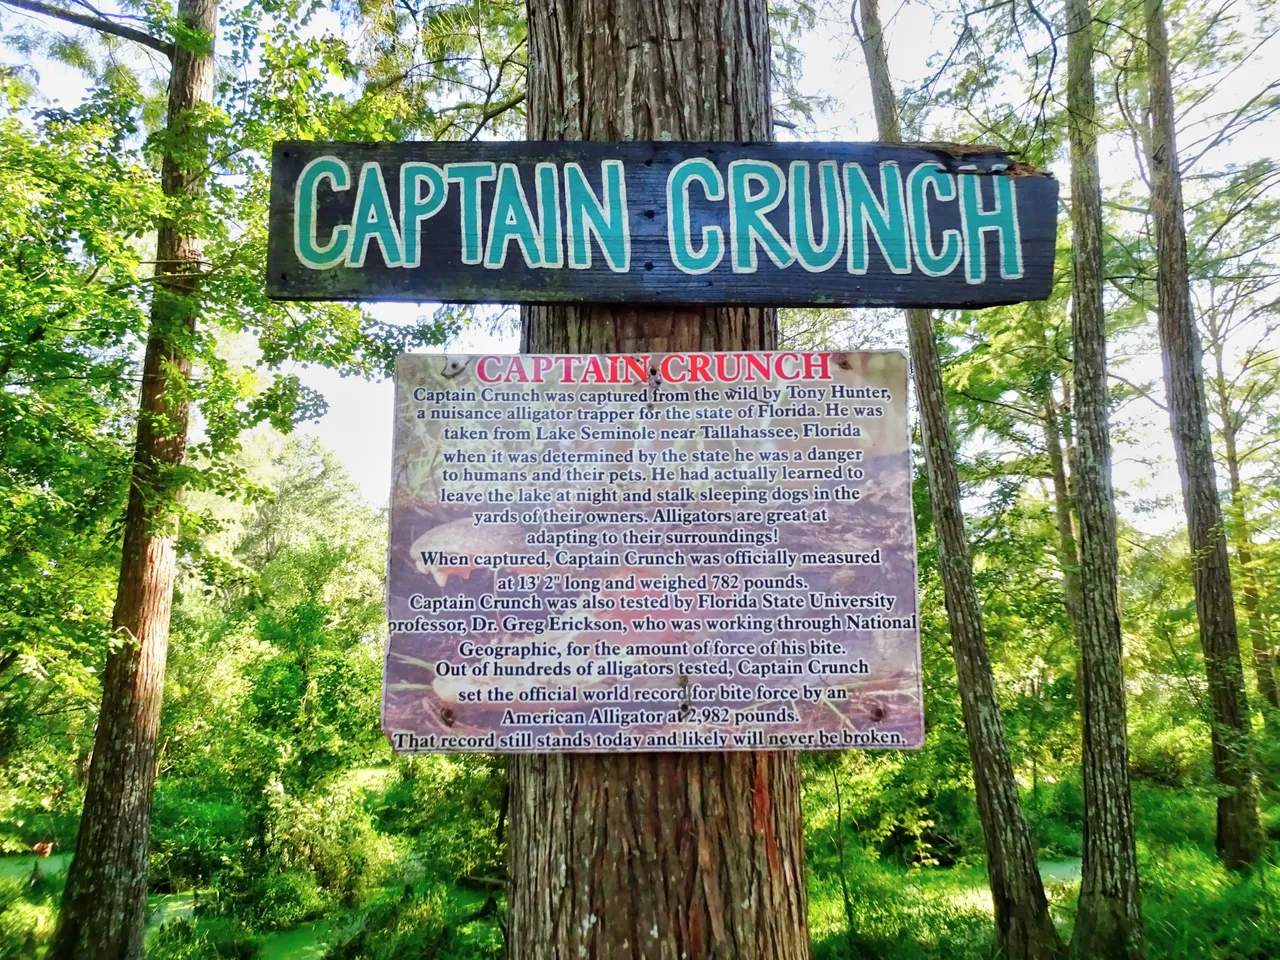 CAPTAIN CRUNCH
CAPTAIN CRUNCH
Captain Crunch was captured from the wild by Tony Hunter,
a nuisance alligator trapper for the state of Florida. He was
taken from Lake Seminole near Tallahassee, Florida
when it was determined by the state he was a danger
to humans and their pets. He had actually learned to
leave the lake at night and stalk sleeping dogs in the
yards of their owners. Alligators are great at
adapting to their surroundings!
When captured, Captain Crunch was officially measured
at 13' 2" long and weighed 782 pounds.
Captain Crunch was also tested by Florida State University
professor, Dr. Greg Erickson, who was working through National
Geographic, for the amount of force of his bite.
Out of hundreds of alligators tested, Captain Crunch
set the official world record for bite force by an
American Alligator at 2,982 pounds.
That record still stands today and likely will never be broken.